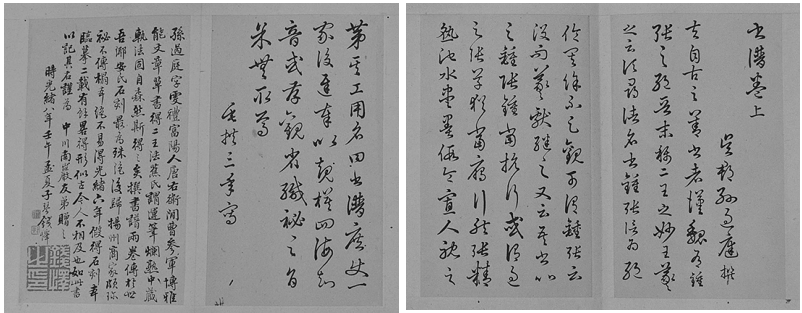 書譜卷上
吳郡孫過庭撰
夫自古之善書者漢魏有鍾
張之絕晉末稱二王之妙王羲
之云頃尋諸名書鍾張信為絕
倫其餘不足觀可謂鍾張云
沒而羲獻繼之又云吾書比
之鍾張鍾當抗行或謂過
之張草猶當鴈行然張精
熟池水盡墨假令寡人耽之
第其工用名曰書譜庶使一
家後進奉以規模四海知
音或存觀省緘祕之旨
余無取焉
垂拱三年寫
孫過庭字虔禮富陽人唐右衛冑曹參軍博雅
能文章草書得二王法蕉氏謂運筆爛熟中藏
軌法固自森然斯得之矣撰書譜兩卷傳於世
吾鄉安氏石刻最為殊絕後歸揚州商家頗珍
祕不傳搨本絕不易得光緒六年假得石刻本
臨摹二載有餘畧得形似古今人不相及也如此書
以記其右謹為 中川尚嚴友弟贈之
時光緒八年壬午孟夏子琴錢懌